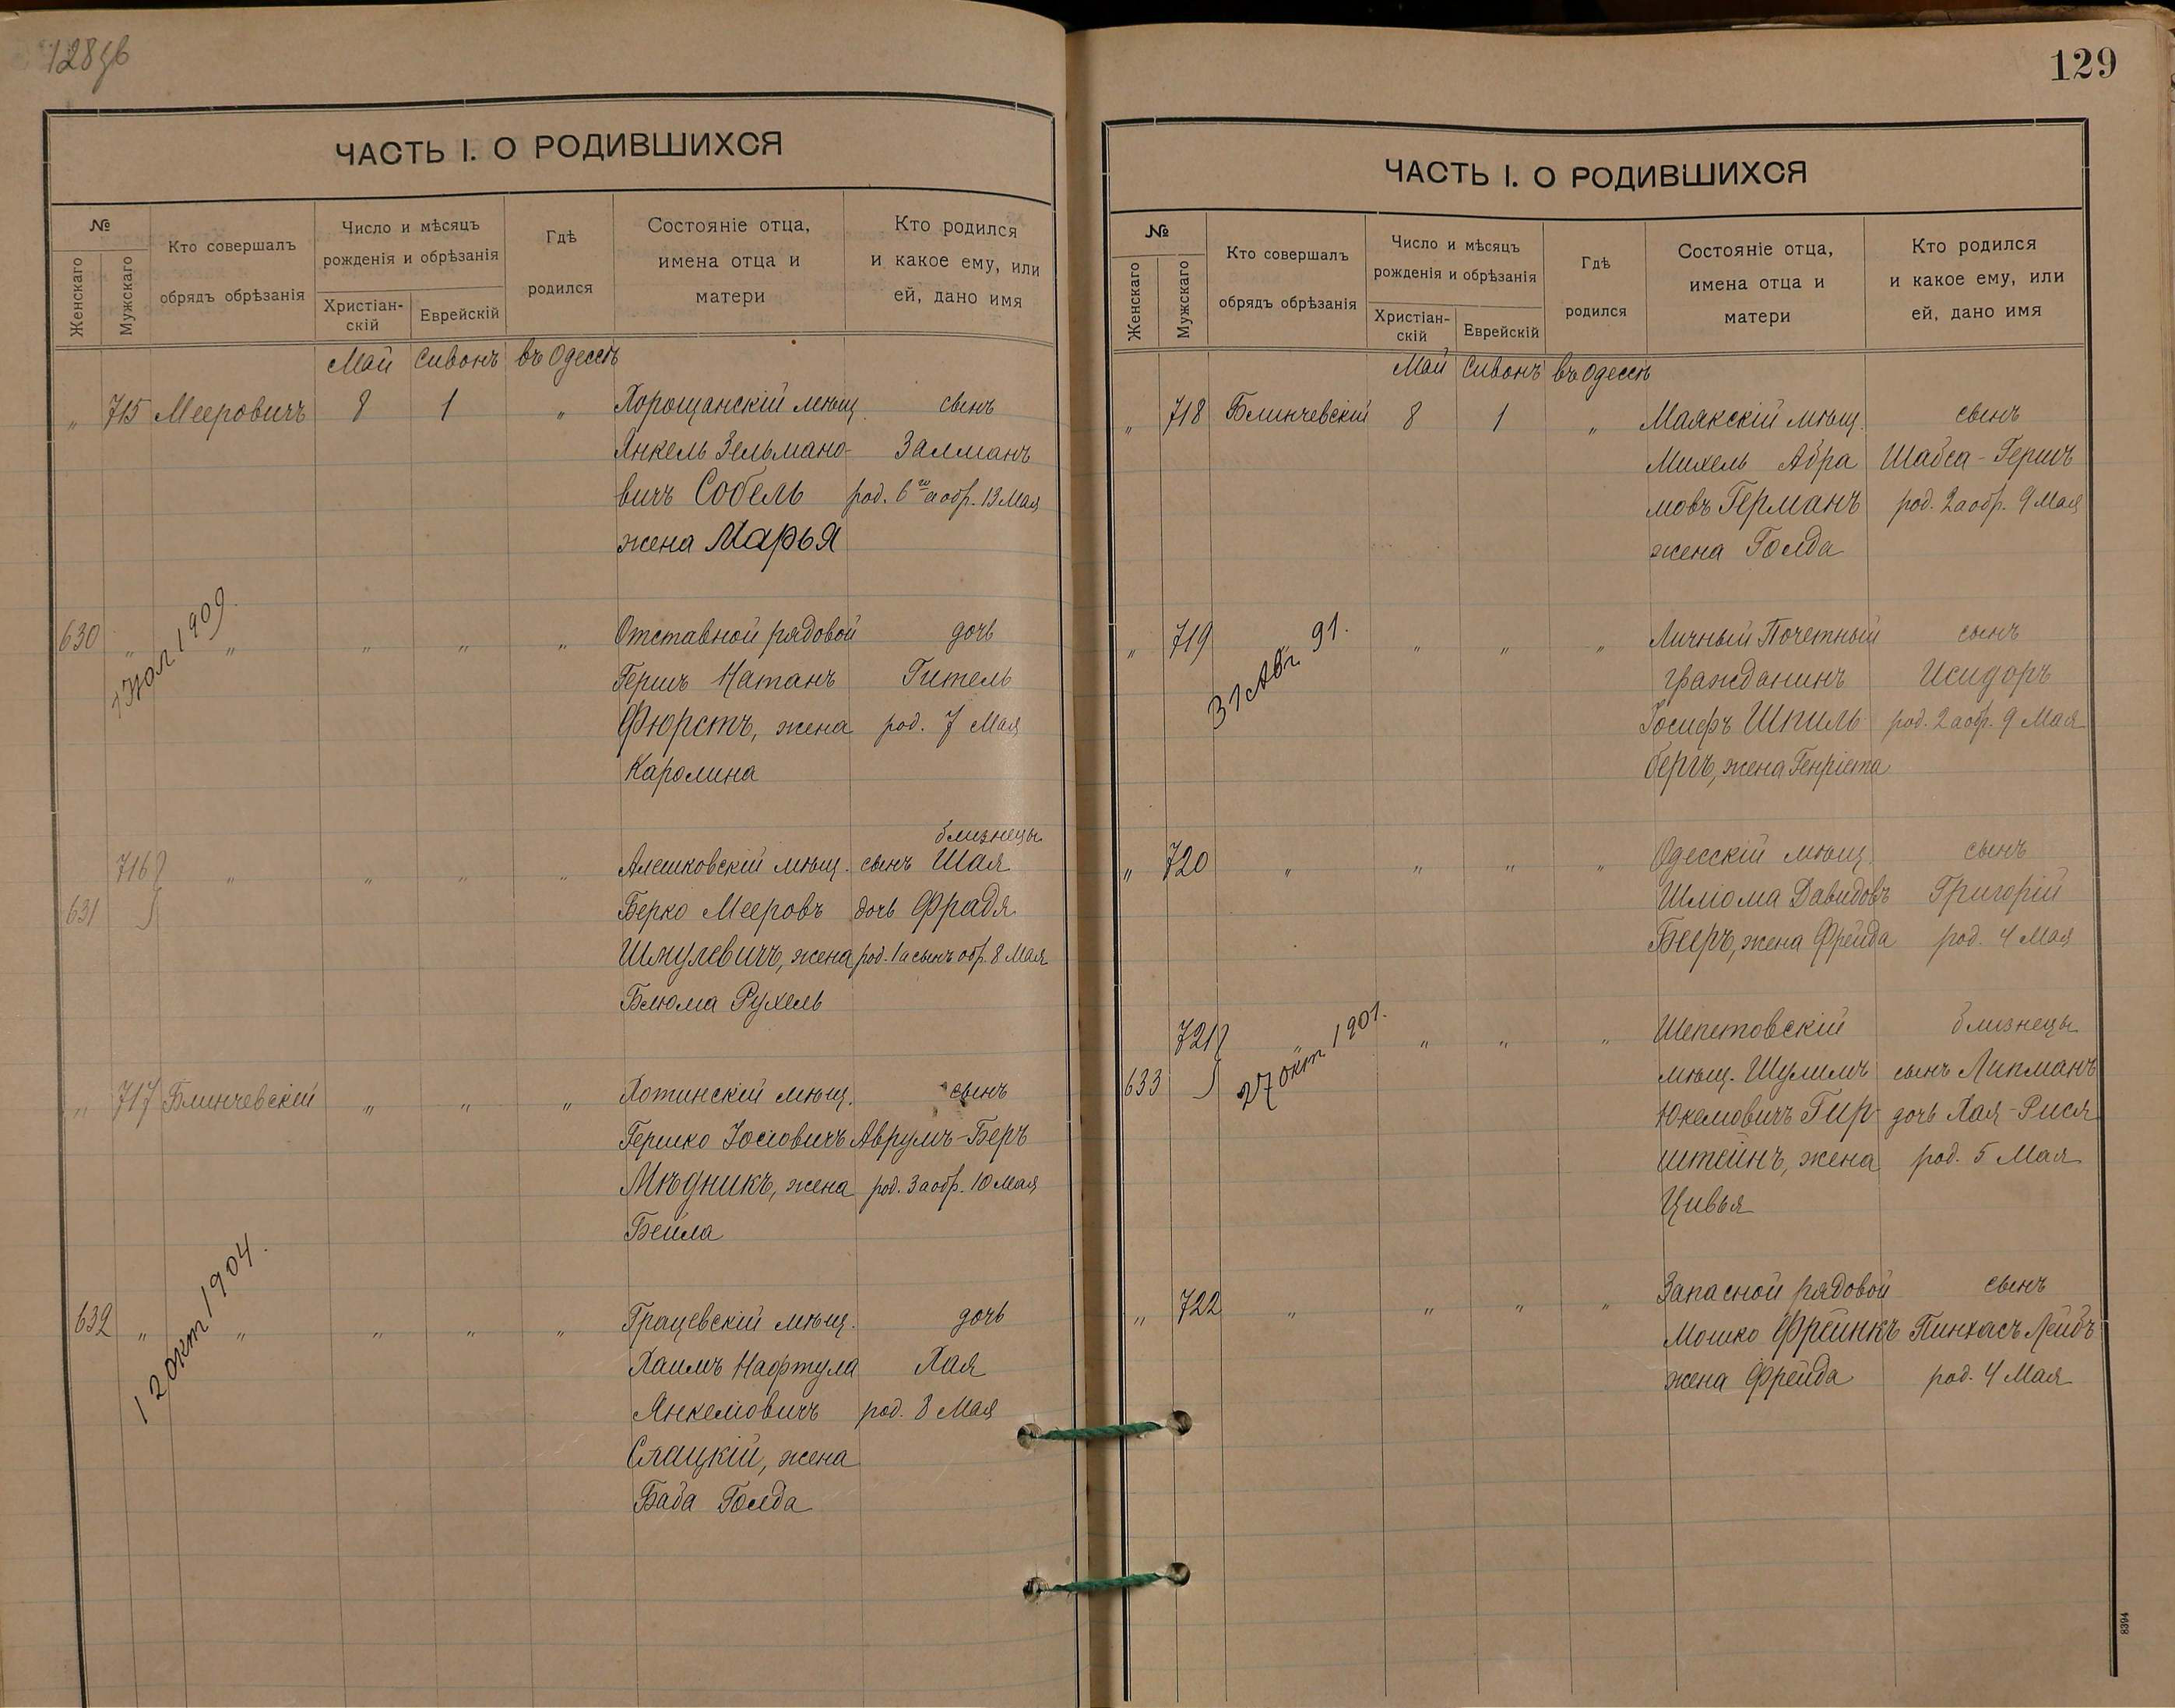 128об
ЧАСТЬ I. О РОДИВШИХСЯ
№
Женскаго
Мужскаго
Кто совершалъ
обрядъ обрѣзанія
Число и мѣсяцъ
рожденія и обрѣзанія
Христіан-
скій
Еврейскій
Гдѣ
родился
Состояніе отца,
имена отца и
матери
Кто родился
и какое ему, или
ей, дано имя
Май Сивонъ въ Одессѣ
„ 715 Мееровичъ 8 1 „ Хорощанскій мѣщ. сынъ
Янкель Зельмано- Залманъ
вичъ Собель род. 6го а обр. 13 Мая
жена Марья
630 „ „ „ „ „ Отставной рядовой дочь
1909.
Гершъ Натанъ Гитель
Фюрстъ, жена род. 7 Мая
Каролина
близнецы
716 „ „ „ „ Алешковскій мѣщ. сынъ Шая
631 Берко Мееровъ дочь Фрадя
Шмулевичъ, жена род. 1 а сынъ обр. 8 Мая
Блюма Рухель
„ 717 Блинчевскій „ „ „ Хотинскій мѣщ. сынъ
Гершко Іосіовичъ Аврумъ-Беръ
Мѣдникъ, жена род. 3 а обр. 10 Мая
Бейла
632 „ „ „ „ „ Грацевскій мѣщ. дочь
12 окт 1904.
Хаимъ Нафтула Хая
Янкеліовичъ род. 8 Мая
Слацкій, жена
Баба Голда
129
ЧАСТЬ I. О РОДИВШИХСЯ
№
Женскаго
Мужскаго
Кто совершалъ
обрядъ обрѣзанія
Число и мѣсяцъ
рожденія и обрѣзанія
Христіан-
скій
Еврейскій
Гдѣ
родился
Состояніе отца,
имена отца и
матери
Кто родился
и какое ему, или
ей, дано имя
Май Сивонъ въ Одессѣ
„ 718 Блинчевскій 8 1 „ Маякскій мѣщ. сынъ
Михель Абра Шабса-Гершъ
мовъ Германъ род. 2 а обр. 9 Мая
жена Голда
„ 719 „ „ „ Личный Почетный сынъ
31 Авг. 91.
гражданинъ Исидоръ
Іосифъ Шпиль род. 2 а обр. 9 Мая
бергъ, жена Генріета
„ 720 „ „ „ „ Одесскій мѣщ. сынъ
Шліома Давидовъ Григорій
Бееръ, жена Фрейда род. 4 Мая
721 „ „ „ „ Шепетовскій близнецы
27 окт 1901.
633 мѣщ. Шулимъ сынъ Липманъ
Юкеліовичъ Гир дочь Хая-Рися
штейнъ, жена род. 5 Мая
Цивья
„ 722 „ „ „ „ Запасной рядовой сынъ
Мошко Фрейнкъ Пинхасъ Лейбъ
жена Фрейда род. 4 Мая
8394